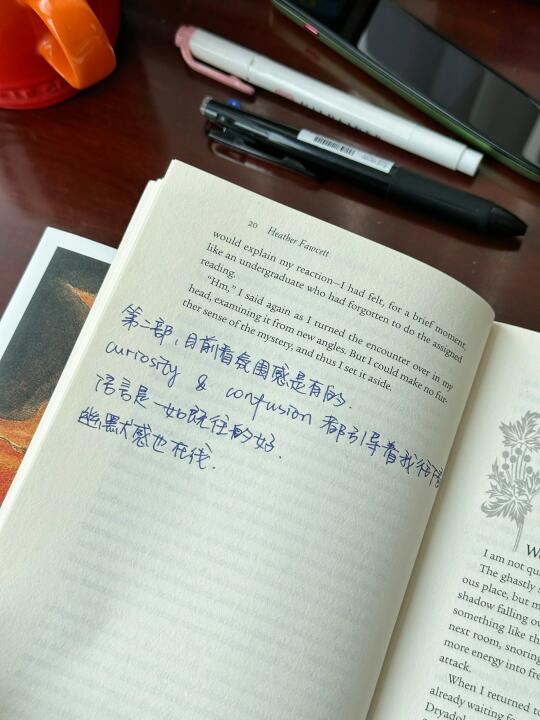 20 Heather Fawcett
would explain my reaction—I had felt, for a brief moment,
like an undergraduate who had forgotten to do the assigned
reading.
“Hm,” I said again as I turned the encounter over in my
head, examining it from new angles. But I could make no fur-
ther sense of the mystery, and thus I set it aside.
第二部,目前看氛围感是有的.
curiosity & confusion 都引导着我往后
语言是一如既往的好.
幽默感也在线.
I am not qu
The ghastly s
ous place, but m
shadow falling ov
something like th
next room, snoring
more energy into fre
attack.
When I returned to
already waiting fo
Dryadol